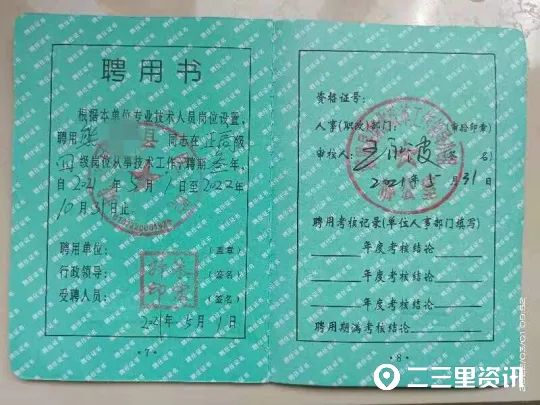 聘用书
根据本单位专业技术人员岗位设置,
聘用 县 同志在正高级
四级岗位从事技术工作,聘期 年,
自2021年5月1日至2022年
10月31日止
聘用单位: (盖章)
行政领导: (签名)
受聘人员: (签名)
2021年5月1日
·7·
资格证号:
人事(职改)部门: (审验印章)
审核人: (签名)
2021年5月31日
办公室
聘用考核记录(单位人事部门填写)
年度考核结论
年度考核结论
年度考核结论
聘用期满考核结论
·8·
二三里资讯